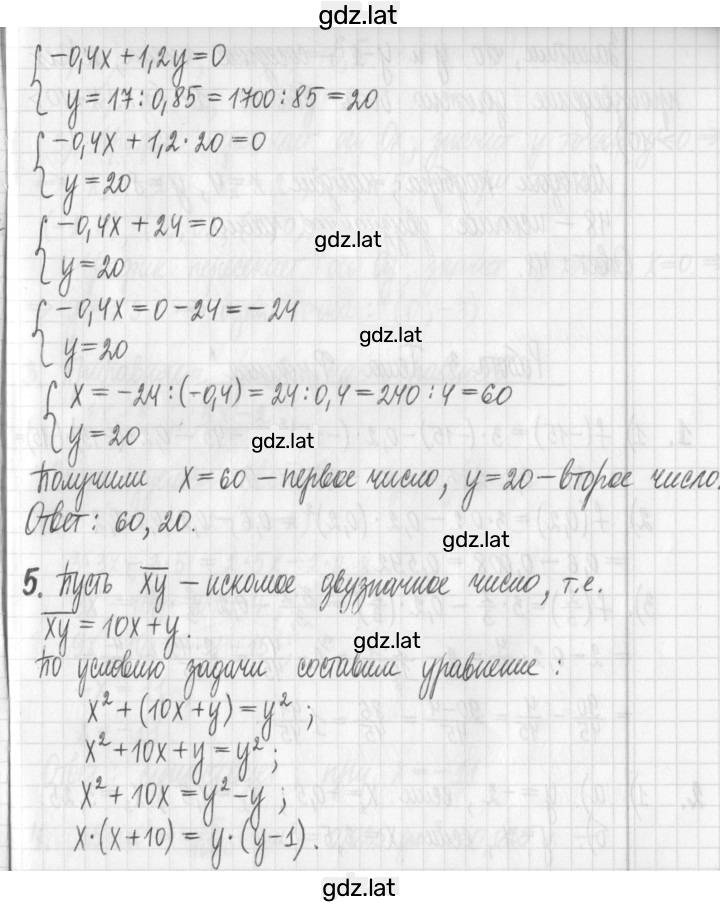 gdz.lat
{-0,4x + 1,2y = 0
{y = 17 : 0,85 = 1700 : 85 = 20
{-0,4x + 1,2 · 20 = 0
{y = 20
{-0,4x + 24 = 0
gdz.lat
{y = 20
{-0,4x = 0 - 24 = -24
gdz.lat
{y = 20
{x = -24 : (-0,4) = 24 : 0,4 = 240 : 4 = 60
{y = 20
gdz.lat
Получили x = 60 - первое число, y = 20 - второе число.
Ответ: 60, 20.
gdz.lat
5. Пусть x̅y̅ - искомое двузначное число, т.е.
x̅y̅ = 10x + y.
gdz.lat
По условию задачи составим уравнение:
x² + (10x + y) = y² ;
x² + 10x + y = y² ;
gdz.lat
x² + 10x = y² - y ;
x · (x + 10) = y · (y - 1).
gdz.lat